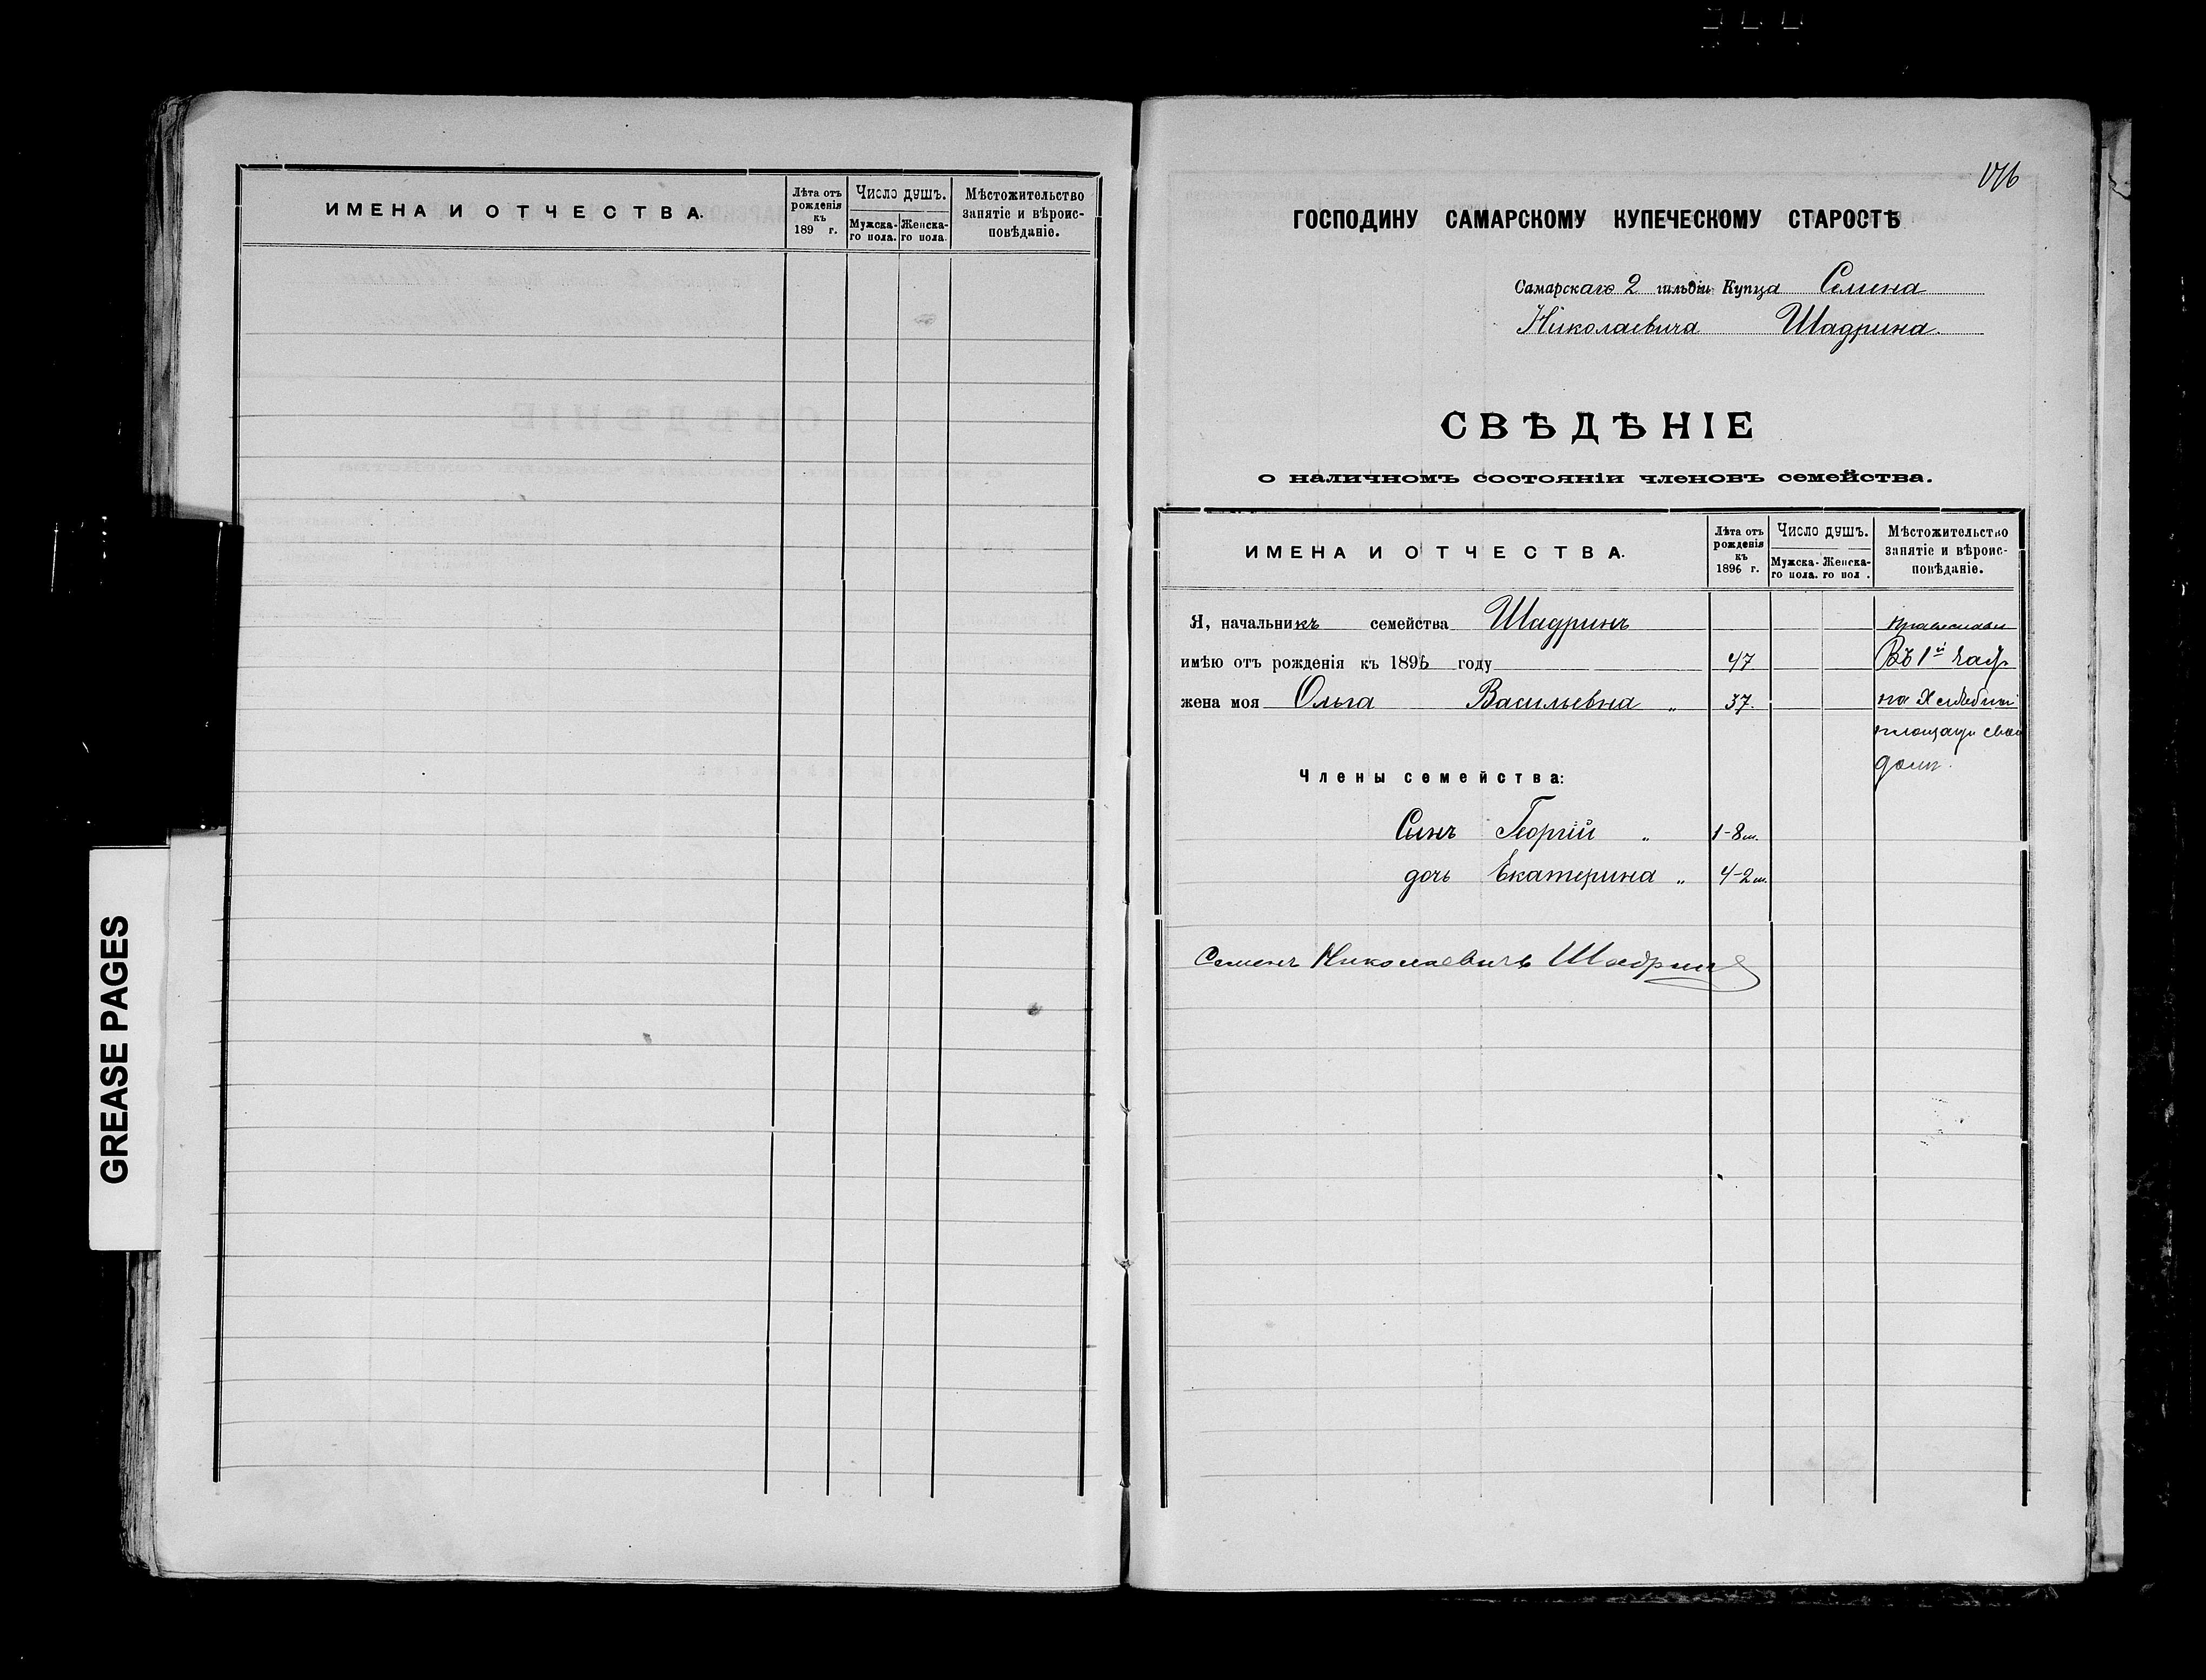 ИМЕНА И ОТЧЕСТВА.
Лѣта отъ рожденія къ 189 г.
Число душъ.
Мужска-го пола.
Женска-го пола.
Мѣстожительство занятіе и вѣроис-повѣданіе.
GREASE PAGES
ГОСПОДИНУ САМАРСКОМУ КУПЕЧЕСКОМУ СТАРОСТѢ
Самарскаго 2 гильдіи Купца Семена
Николаевича Шадрина.
СВѢДѢНІЕ
о наличномъ состояніи членовъ семейства.
ИМЕНА И ОТЧЕСТВА.
Лѣта отъ рожденія къ 1896 г.
Число душъ.
Мужска-го пола.
Женска-го пол .
Мѣстожительство занятіе и вѣроис-повѣданіе.
Я, начальникъ семейства Шадринъ
имѣю отъ рожденія къ 1896 году 47 Въ 1й
жена моя Ольга Васильевна " 37. на Хлѣбной
площади свой
домъ.
Члены семейства:
Сынъ Георгій " 1-8 м.
дочь Екатерина " 4-2 м.
Семенъ Николаевичъ Шадринъ